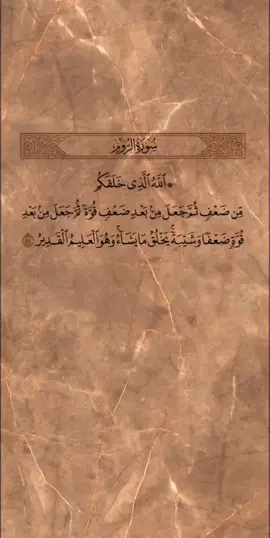 سُورَةُ الرُّومِ
۞ ٱللَّهُ ٱلَّذِى خَلَقَكُم
مِّن ضَعْفٍ ثُمَّ جَعَلَ مِنۢ بَعْدِ ضَعْفٍ قُوَّةً ثُمَّ جَعَلَ مِنۢ بَعْدِ
قُوَّةٍ ضَعْفًا وَشَيْبَةً ۚ يَخْلُقُ مَا يَشَآءُ ۖ وَهُوَ ٱلْعَلِيمُ ٱلْقَدِيرُ ۝٥٤